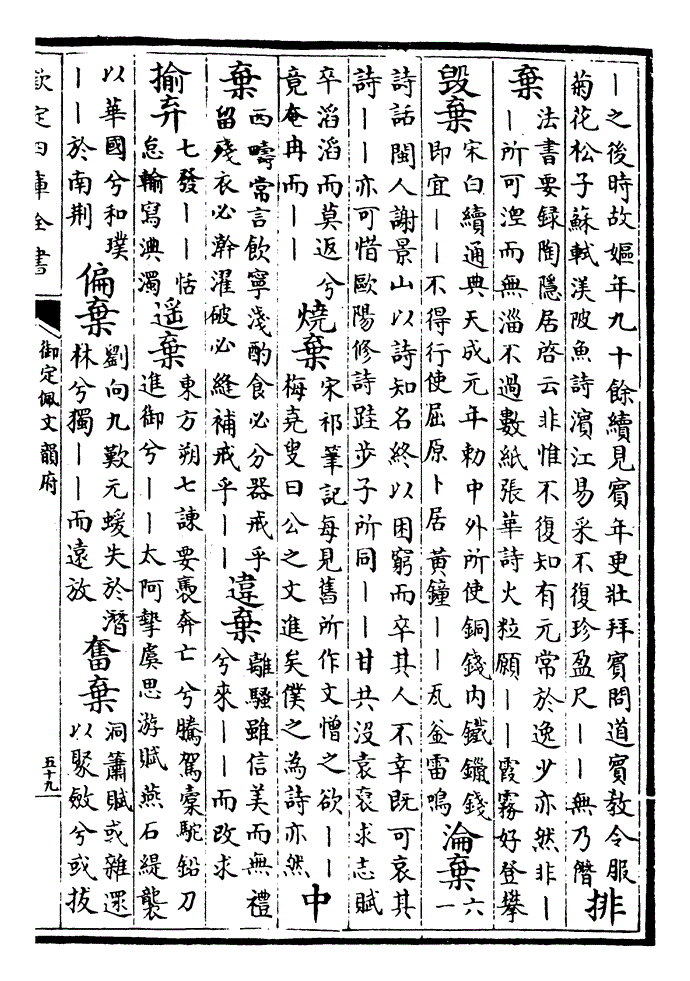 ｜之後時故嫗年九十餘續見賓年更壯拜賓問道賓敎令服
菊花松子蘇軾渼陂魚詩濱江易采不復珍盈尺｜｜無乃僭
排
棄
法書要録陶隱居啓云非惟不復知有元常於逸少亦然非｜
｜所可涅而無淄不過數紙張華詩火粒願｜｜霞霧好登攀
毀棄
宋白續通典天成元年勅中外所使銅錢内鐵鑞錢
即宜｜｜不得行使屈原卜居黄鐘｜｜瓦釜雷鳴
淪棄
六
一
詩話閩人謝景山以詩知名終以困窮而卒其人不幸既可哀其
詩｜｜亦可惜歐陽修詩跬步子所同｜｜甘共沒袁袞求志賦
卒滔滔而莫返兮
竟奄冉而｜｜
燒棄
宋祁筆記每見舊所作文憎之欲｜｜
梅堯叟曰公之文進矣僕之為詩亦然
中
棄
西疇常言飲寧淺酌食必分器戒乎
留殘衣必澣濯破必縫補戒乎｜｜
違棄
離騷雖信美而無禮
兮來｜｜而改求
揄弃
七發｜｜恬
怠輸寫淟濁
遥棄
東方朔七諫要褭奔亡兮騰駕橐駝鉛刀
進御兮｜｜太阿摯虞思游賦燕石緹襲
以華國兮和璞
｜｜於南荆
偏棄
劉向九歎元蝯失於潛
林兮獨｜｜而遠放
奮棄
洞簫賦或雜遝
以聚斂兮或拔
欽定四庫全書
御定佩文韻府
五十九